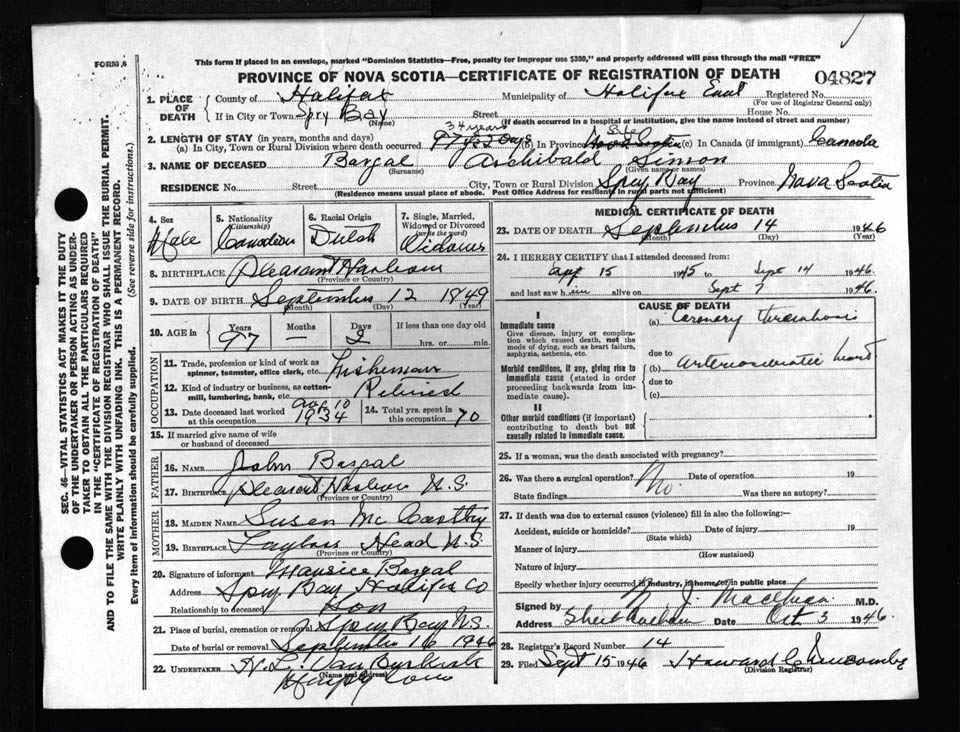 FORM 6
This form if placed in an envelope, marked "Dominion Statistics—Free, penalty for improper use $300," and properly addressed will pass through the mail "FREE"
PROVINCE OF NOVA SCOTIA—CERTIFICATE OF REGISTRATION OF DEATH 04827
1. PLACE OF DEATH County of Halifax Municipality of Halifax East Registered No.
(For use of Registrar General only)
If in City or Town Spry Bay House No.
(Name) (If death occurred in a hospital or institution, give name instead of street and number)
2. LENGTH OF STAY (in years, months and days) 34 years
(a) In City, Town or Rural Division where death occurred (b) In Province Nova Scotia (c) In Canada (if immigrant) Canada
3. NAME OF DECEASED Bargal Archibald Simon
(Surname) (Given name or names)
RESIDENCE No. Street City, Town or Rural Division Spry Bay Province Nova Scotia
(Residence means usual place of abode. Post Office Address for residents in rural parts not sufficient)
4. Sex Male
5. Nationality (Citizenship) Canadian
6. Racial Origin Dutch
7. Single, Married, Widowed or Divorced (write the word) Widower
8. BIRTHPLACE Pleasant Harbour
(Province or Country)
9. DATE OF BIRTH September 12 1849
(Month) (Day) (Year)
10. AGE in Years Months Days If less than one day old
97 — 2 hrs. or min.
OCCUPATION
11. Trade, profession or kind of work as spinner, teamster, office clerk, etc. Fisherman
12. Kind of industry or business, as cotton-mill, lumbering, bank, etc. Retired
13. Date deceased last worked at this occupation Aug 10 1934
14. Total yrs. spent in this occupation 70
15. If married give name of wife or husband of deceased
FATHER
16. NAME John Bargal
17. BIRTHPLACE Pleasant Harbour N.S.
(Province or Country)
MOTHER
18. MAIDEN NAME Susen McCarthy
19. BIRTHPLACE Taylors Head N.S
(Province or Country)
20. Signature of informant Maurice Bargal
Address Spry Bay Halifax Co
Relationship to deceased Son
21. Place of burial, cremation or removal Spry Bay N.S.
Date of burial or removal September 16 1946
22. UNDERTAKER
(Name and address)
MEDICAL CERTIFICATE OF DEATH
23. DATE OF DEATH September 14 1946
(Month) (Day) (Year)
24. I HEREBY CERTIFY that I attended deceased from
Apr 15 1945 to Sept 14 1946
and last saw him alive on Sept 7 1946
CAUSE OF DEATH
I
Immediate cause
Give disease, injury or complication which caused death, not the mode of dying, such as heart failure, asphyxia, asthenia, etc.
(a) Coronary thrombosis
due to
Morbid conditions, if any, giving rise to immediate cause (stated in order proceeding backwards from immediate cause)
(b) heart
due to
(c)
II
Other morbid conditions (if important) contributing to death but not causally related to immediate cause.
25. If a woman, was the death associated with pregnancy?
26. Was there a surgical operation? No. Date of operation 19
State findings Was there an autopsy?
27. If death was due to external causes (violence) fill in also the following:—
Accident, suicide or homicide? Date of injury 19
(State which)
Manner of injury
(How sustained)
Nature of injury
Specify whether injury occurred in industry, in home, or in public place
Signed by M.D.
Address Date Oct 3 1946
28. Registrar's Record Number 14
29. Filed Sept 15 1946 Howard
(Division Registrar)
SEC. 46—VITAL STATISTICS ACT MAKES IT THE DUTY
OF THE UNDERTAKER OR PERSON ACTING AS UNDERTAKER
TO OBTAIN ALL THE PARTICULARS REQUIRED
IN THE "CERTIFICATE OF REGISTRATION OF DEATH"
AND TO FILE THE SAME WITH THE DIVISION REGISTRAR WHO SHALL ISSUE THE BURIAL PERMIT.
WRITE PLAINLY WITH UNFADING INK. THIS IS A PERMANENT RECORD.
Every item of information should be carefully supplied. (See reverse side for instructions.)